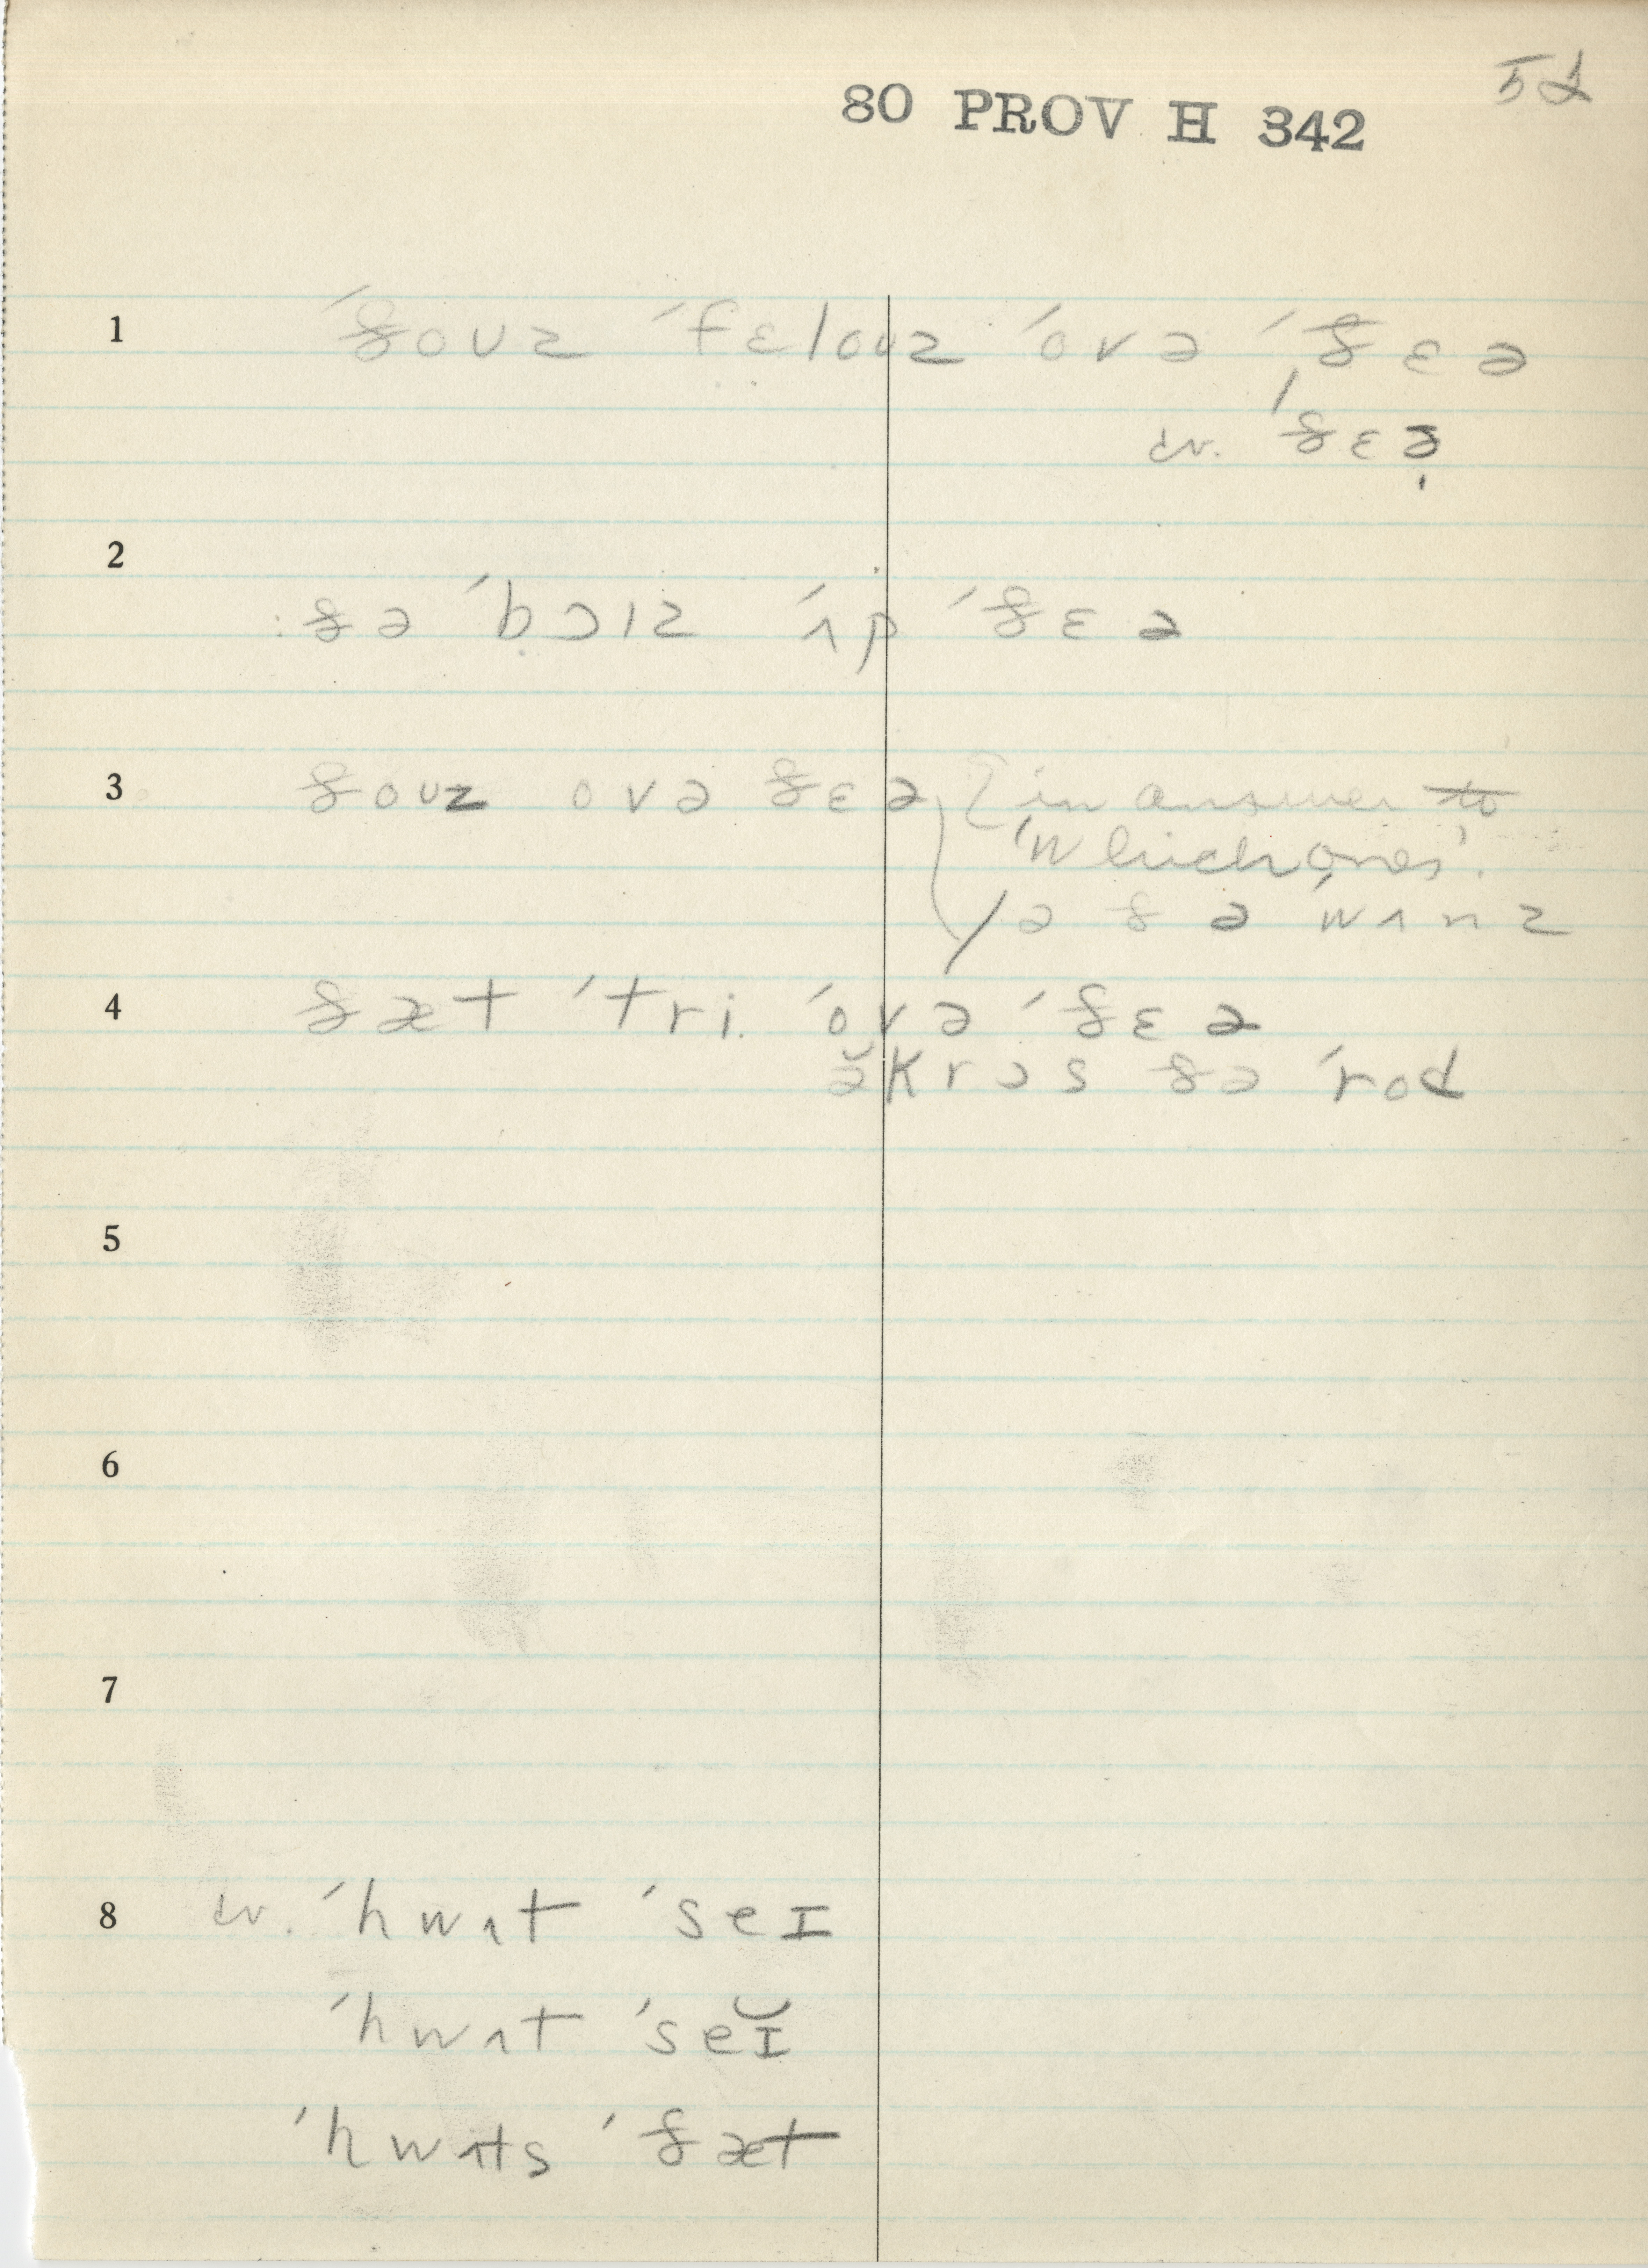 52
80 PROV H 342
1 ´ðoʊz ´fɛloʊz ´ovə ´ðɛə
cv. ´ðɛə̣
2 :ðə ´bɔɪz ´ʌp ´ðɛə
3 ðoʊz ovə ðɛə [in answer to
'Which ones'.
/ə ðə wʌnz
4 ðæt ´tri. ´ovə ´ðɛə
ə̆krɔs ðə ´rod
5
6
7
8 cv. ´hwʌt ´seɪ
´hwʌt ´seɪ̆
´hwʌts ´ðæt